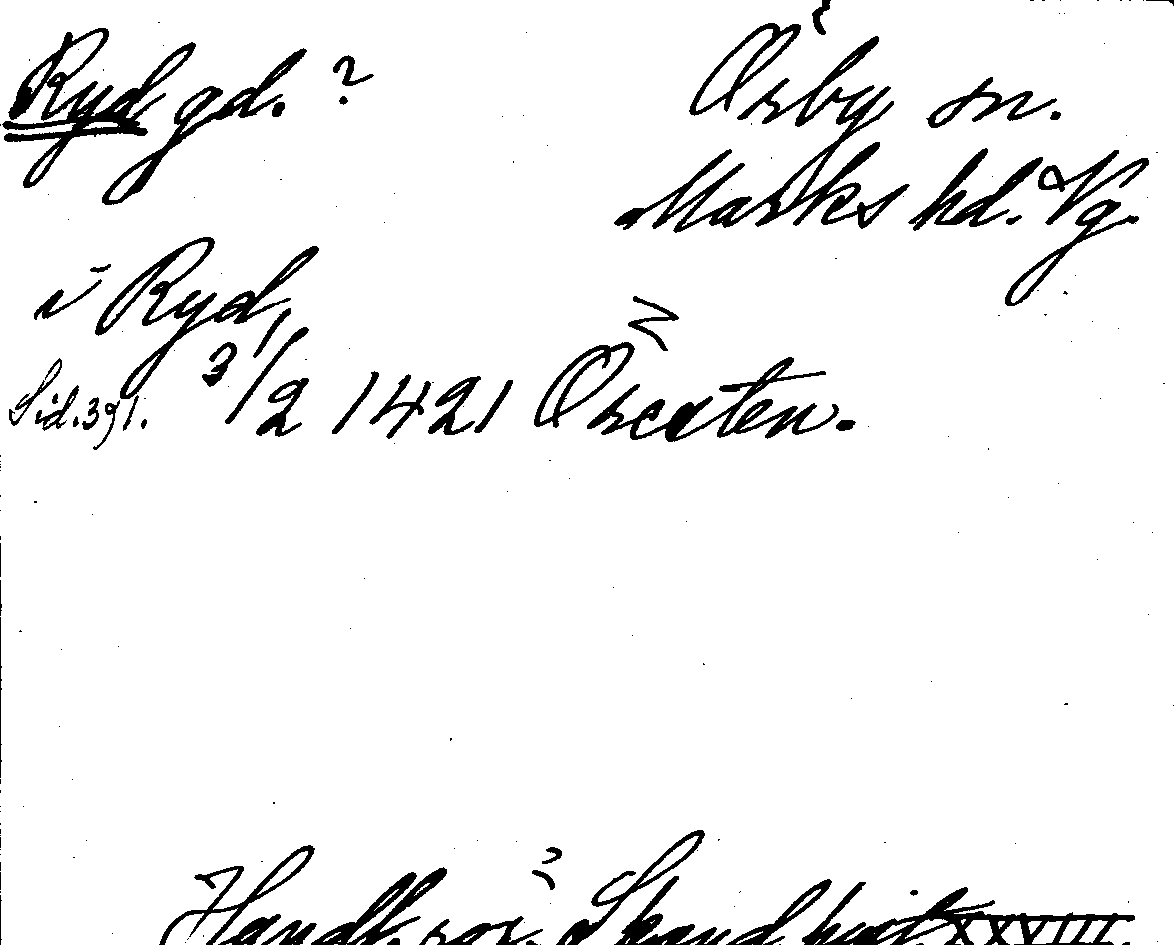 Ryd, gd. ?
Örby sn.
Marks hd. Vg.
i Ryd,
Sid. 391. 31/2 1421 Örcaten.
Handl. rör. Skand. hist. XXVIII.